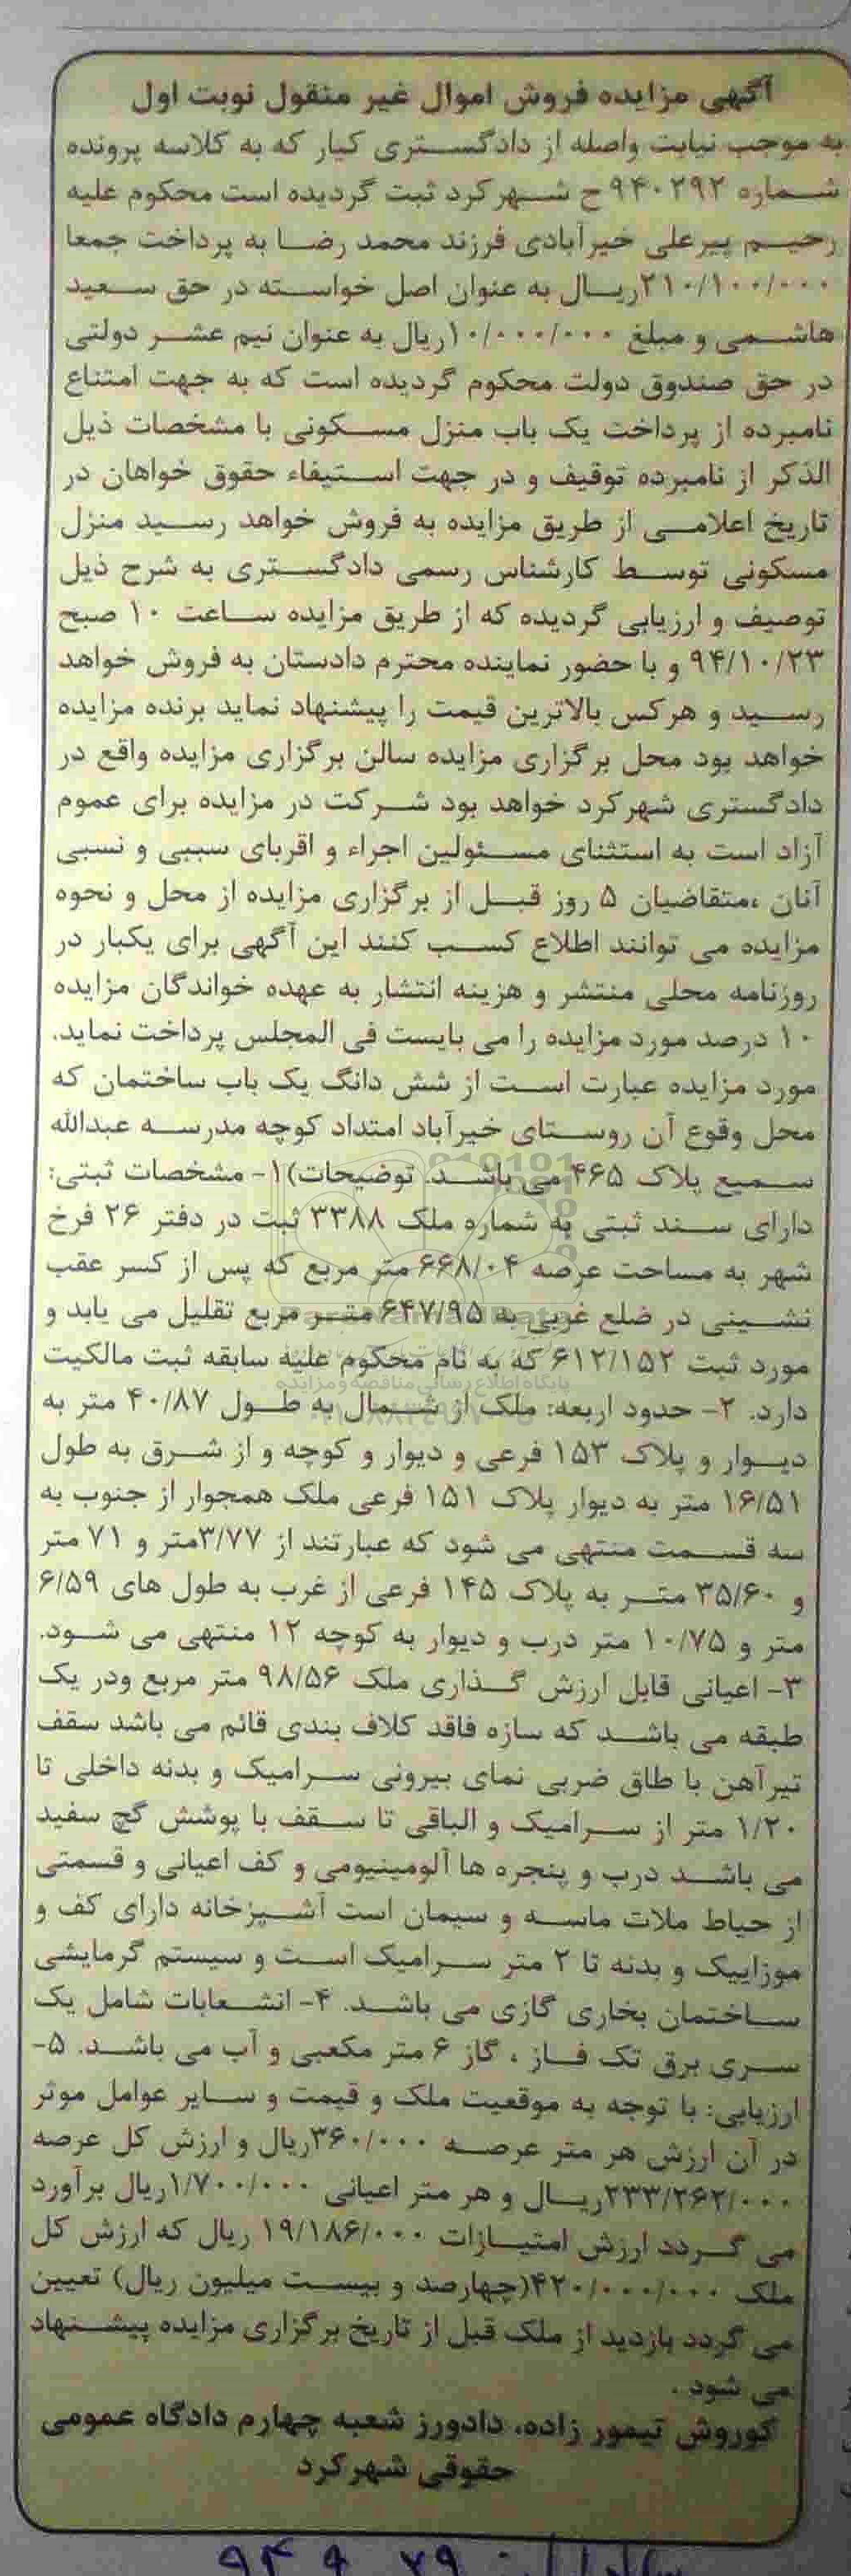 آگهی مزایده فروش اموال غیر منقول نوبت اول
به موجب نیابت واصله از دادگستری کیار که به کلاسه پرونده
شماره ۹۴۰۲۹۲ ح شهرکرد ثبت گردیده است محکوم علیه
رحیم پیرعلی خیرآبادی فرزند محمد رضا به پرداخت جمعا
۲۱۰/۱۰۰/۰۰۰ریال به عنوان اصل خواسته در حق سعید
هاشمی و مبلغ ۱۰/۰۰۰/۰۰۰ریال به عنوان نیم عشر دولتی
در حق صندوق دولت محکوم گردیده است که به جهت امتناع
نامبرده از پرداخت یک باب منزل مسکونی با مشخصات ذیل
الذکر از نامبرده توقیف و در جهت استیفاء حقوق خواهان در
تاریخ اعلامی از طریق مزایده به فروش خواهد رسید منزل
مسکونی توسط کارشناس رسمی دادگستری به شرح ذیل
توصیف و ارزیابی گردیده که از طریق مزایده ساعت ۱۰ صبح
۹۴/۱۰/۲۳ و با حضور نماینده محترم دادستان به فروش خواهد
رسید و هرکس بالاترین قیمت را پیشنهاد نماید برنده مزایده
خواهد بود محل برگزاری مزایده سالن برگزاری مزایده واقع در
دادگستری شهرکرد خواهد بود شرکت در مزایده برای عموم
آزاد است به استثنای مسئولین اجراء و اقربای سببی و نسبی
آنان ،متقاضیان ۵ روز قبل از برگزاری مزایده از محل و نحوه
مزایده می توانند اطلاع کسب کنند این آگهی برای یکبار در
روزنامه محلی منتشر و هزینه انتشار به عهده خواندگان مزایده
۱۰ درصد مورد مزایده را می بایست فی المجلس پرداخت نماید.
مورد مزایده عبارت است از شش دانگ یک باب ساختمان که
محل وقوع آن روستای خیرآباد امتداد کوچه مدرسه عبدالله
سمیع پلاک ۴۶۵ می باشد. توضیحات)۱- مشخصات ثبتی:
دارای سند ثبتی به شماره ملک ۳۳۸۸ ثبت در دفتر ۲۶ فرخ
شهر به مساحت عرصه ۶۶۸/۰۴ متر مربع که پس از کسر عقب
نشینی در ضلع غربی به ۶۴۷/۹۵ متر مربع تقلیل می یابد و
مورد ثبت ۶۱۲/۱۵۲ که به نام محکوم علیه سابقه ثبت مالکیت
دارد. ۲- حدود اربعه: ملک از شمال به طول ۴۰/۸۷ متر به
دیوار و پلاک ۱۵۳ فرعی و دیوار و کوچه و از شرق به طول
۱۶/۵۱ متر به دیوار پلاک ۱۵۱ فرعی ملک همجوار از جنوب به
سه قسمت منتهی می شود که عبارتند از ۳/۷۷متر و ۷۱ متر
و ۳۵/۶۰ متر به پلاک ۱۴۵ فرعی از غرب به طول های ۶/۵۹
متر و ۱۰/۷۵ متر درب و دیوار به کوچه ۱۲ منتهی می شود.
۳- اعیانی قابل ارزش گذاری ملک ۹۸/۵۶ متر مربع ودر یک
طبقه می باشد که سازه فاقد کلاف بندی قائم می باشد سقف
تیرآهن با طاق ضربی نمای بیرونی سرامیک و بدنه داخلی تا
۱/۲۰ متر از سرامیک و الباقی تا سقف با پوشش گچ سفید
می باشد درب و پنجره ها آلومینیومی و کف اعیانی و قسمتی
از حیاط ملات ماسه و سیمان است آشپزخانه دارای کف و
موزاییک و بدنه تا ۲ متر سرامیک است و سیستم گرمایشی
ساختمان بخاری گازی می باشد. ۴- انشعابات شامل یک
سری برق تک فاز ، گاز ۶ متر مکعبی و آب می باشد. ۵-
ارزیابی: با توجه به موقعیت ملک و قیمت و سایر عوامل موثر
در آن ارزش هر متر عرصه ۳۶۰/۰۰۰ریال و ارزش کل عرصه
۲۳۳/۲۶۲/۰۰۰ریال و هر متر اعیانی ۱/۷۰۰/۰۰۰ریال برآورد
می گردد ارزش امتیازات ۱۹/۱۸۶/۰۰۰ ریال که ارزش کل
ملک ۴۲۰/۰۰۰/۰۰۰(چهارصد و بیست میلیون ریال) تعیین
می گردد بازدید از ملک قبل از تاریخ برگزاری مزایده پیشنهاد
می شود .
کوروش تیمور زاده، دادورز شعبه چهارم دادگاه عمومی
حقوقی شهرکرد